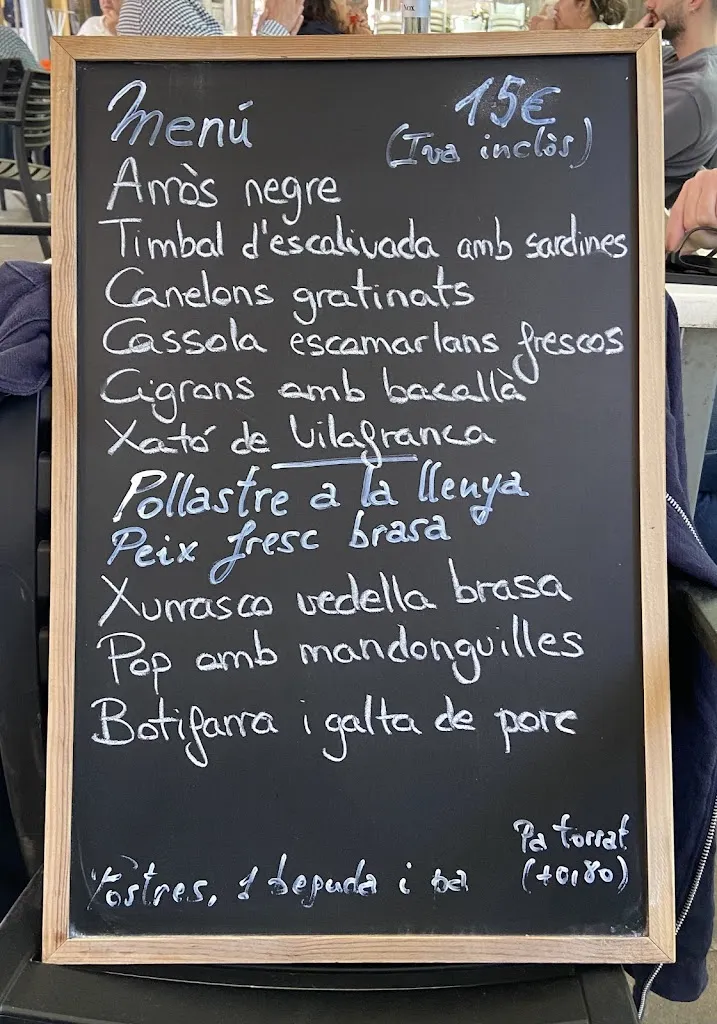 Menú
15€
(Iva inclòs)
Arròs negre
Timbal d'escalivada amb sardines
Canelons gratinats
Cassola escamarlans frescos
Cigrons amb bacallà
Xató de Vilafranca
Pollastre a la llenya
Peix fresc brasa
Xurrasco vedella brasa
Pop amb mandonguilles
Botifarra i galta de porc
Pa torrat
(+0,80)
Postres, 1 beguda i pa